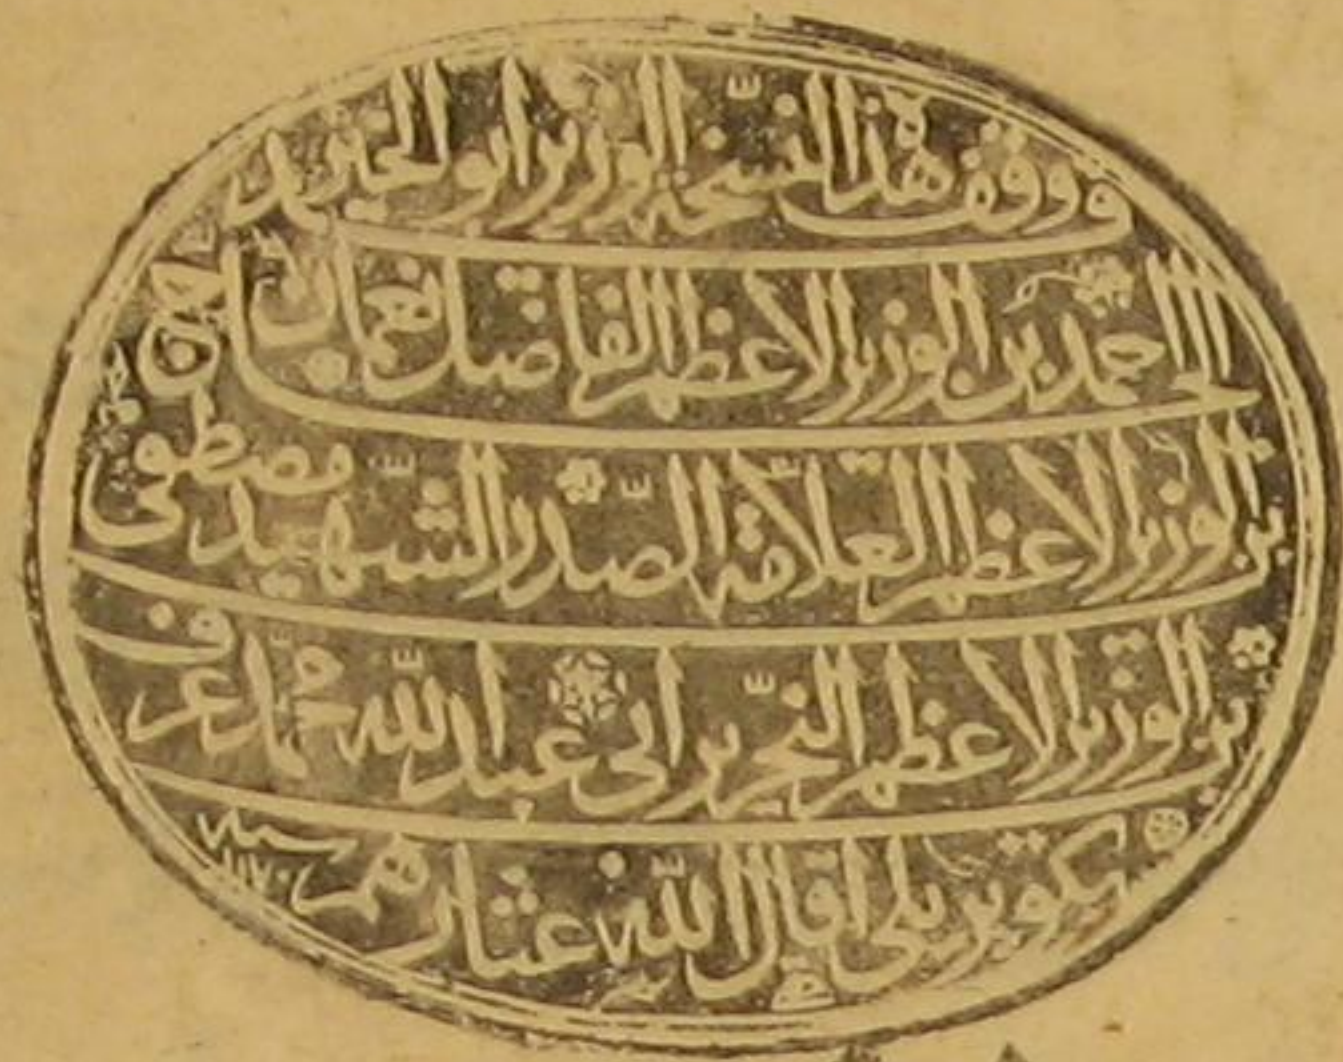 ووقف هذا النسخة الوزير ابو الخير
الحاج احمد بن الوزير الاعظم الفاضل نعمان
بن الوزير الاعظم العلّامة الصّدر الشّهيد مصطفى
بن الوزير الاعظم النّحرير ابي عبد الله محمد عرف
بكوپريلي اقال الله عثارهم سنه ١١٧٠